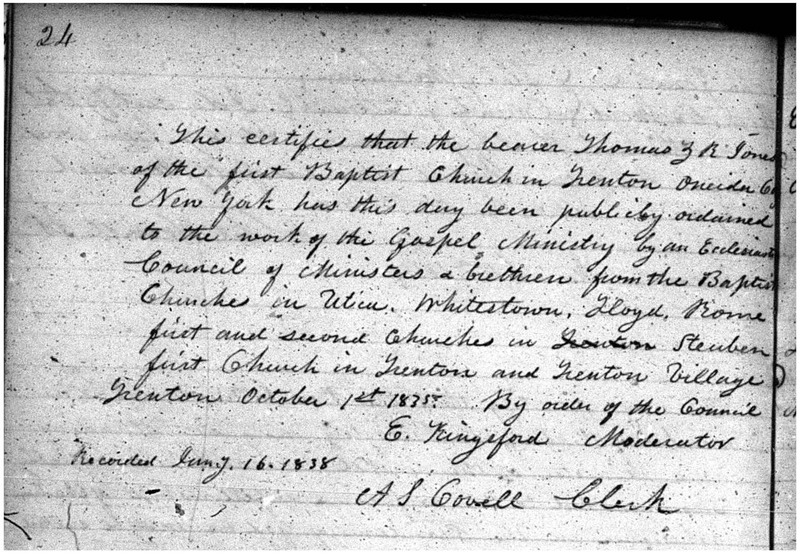 24
This certifies that the bearer Thomas Z R Jones
of the first Baptist Church in Trenton Oneida Co
New York has this day been publicly ordained
to the work of the Gospel Ministry by an Ecclesiast
Council of Ministers & brethren from the Baptist
Churches in Utica, Whitestown, Floyd, Rome
first and second Churches in Trenton Steuben
first Church in Trenton and Trenton Village
Trenton October 1st 1835. By order of the Council
E. Kingsford Moderator
Recorded Jany. 16. 1838
A S Covell Clerk